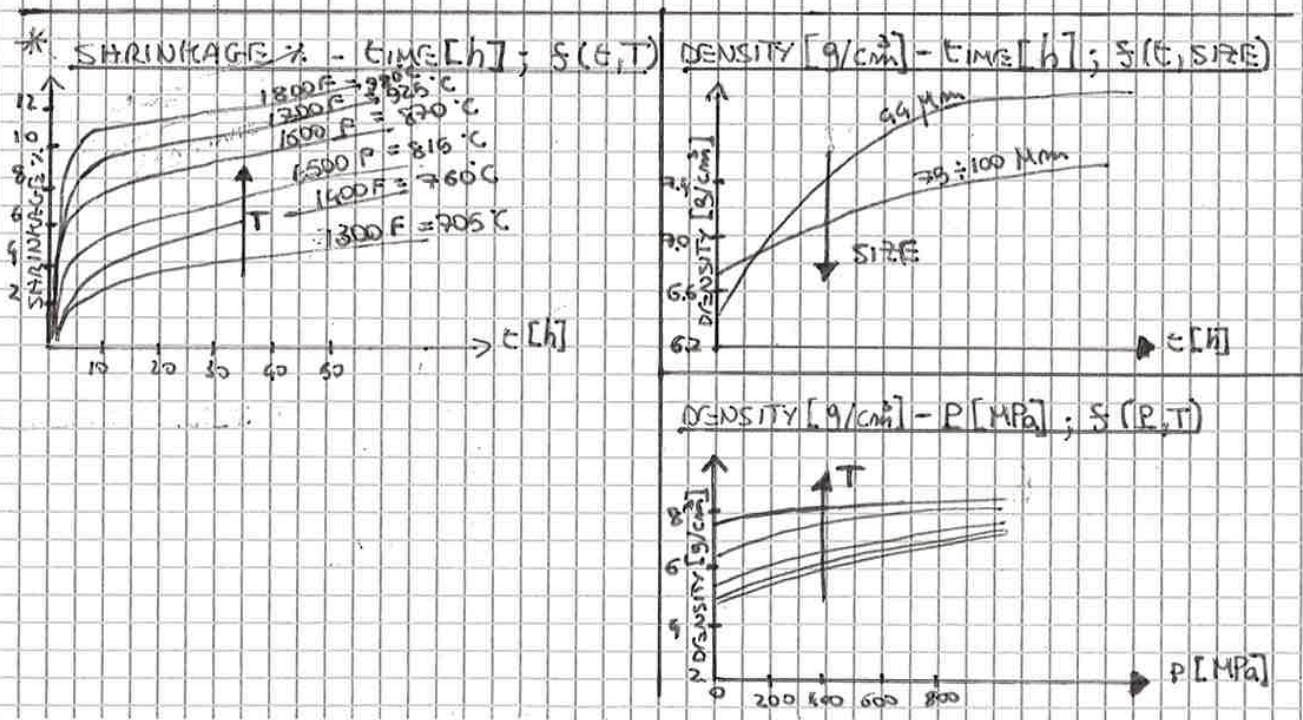 * SHRINKAGE % - TIME [h] ; f(t,T)
12
10
8
6
4
2
SHRINKAGE %
1800F = 980°C
1700F = 925°C
1600F = 870°C
1500F = 815°C
1400F = 760°C
1300F = 705°C
T
t [h]
10 20 30 40 50
DENSITY [g/cm³] - TIME [h] ; f(t, SIZE)
7.4
7.0
6.6
6.2
DENSITY [g/cm³]
44 μm
75÷100 μm
SIZE
t [h]
DENSITY [g/cm³] - P [MPa] ; f(P,T)
8
6
4
2
DENSITY [g/cm³]
T
0 200 400 600 800
P [MPa]